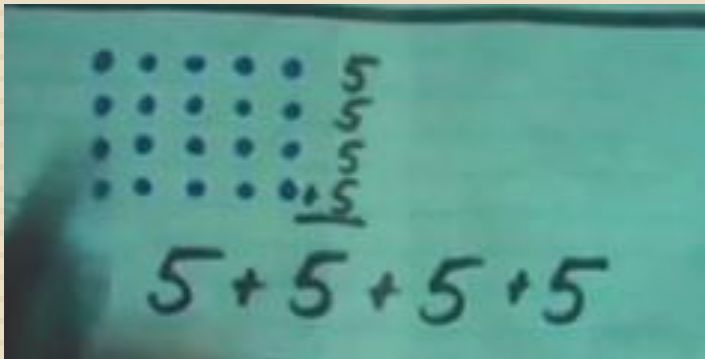 5
5
5
+5
5+5+5+5